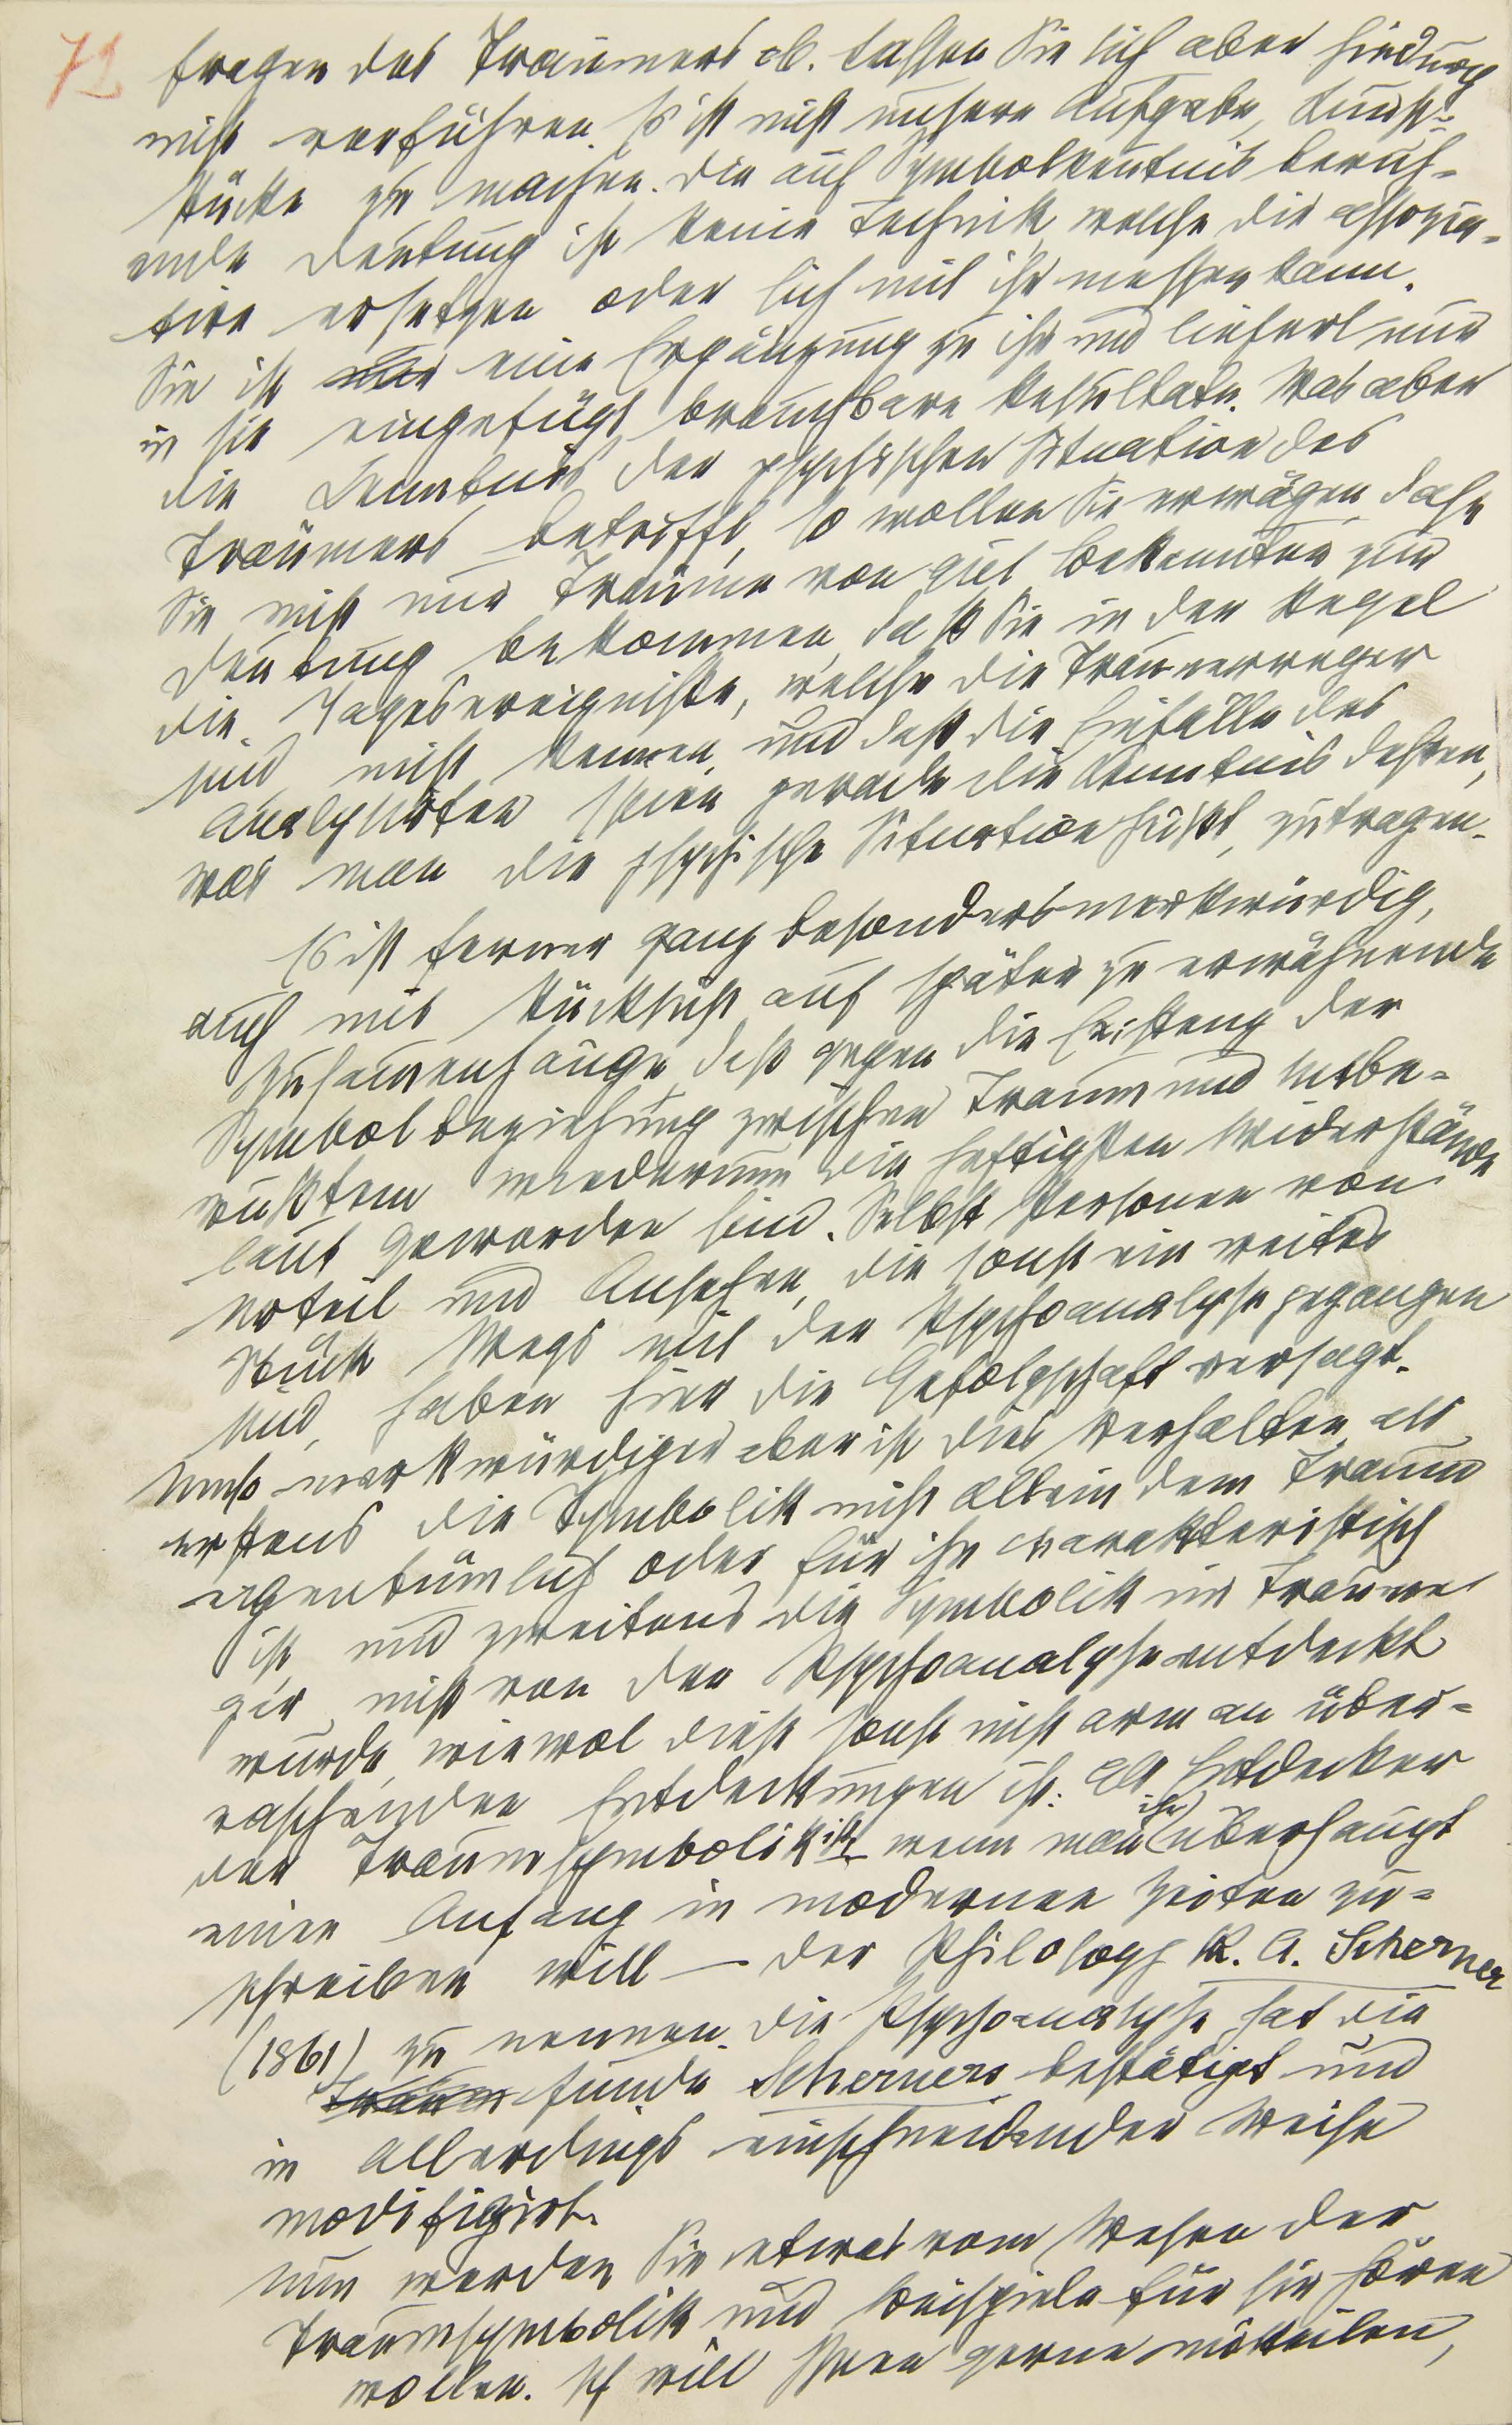 72
fragen des Träumers ab. Lassen Sie sich aber hiedurch
nicht verführen. Es ist nicht unsere Aufgabe, Kunst-
stücke zu machen. Die auf Symbolkenntnis beruh-
ende Deutung ist keine Technik, welche die assozia-
tive ersetzen oder sich mit ihr messen kann.
Sie ist nur eine Ergänzung zu ihr und liefert nur
in sie eingefügt brauchbare Resultate. Was aber
die Kenntnis der psychischen Situation des
Träumers betrifft, so wollen Sie erwägen, dass
Sie nicht nur Träume von gut Bekannten zur
Deutung bekommen, daß Sie in der Regel
die Tagesereignisse, welche die Traumerreger
sind, nicht kennen, und daß die Einfälle des
Analysirten Ihnen gerade die Kenntnis dessen,
was man die psychische Situation heißt, zutragen.
Es ist ferner ganz besonders merkwürdig,
auch mit Rücksicht auf später zu erwähnende
Zusammenhänge, daß gegen die Existenz der
Symbolbeziehung zwischen Traum und Unbe-
wußtem wiederum die heftigsten Widerstände
laut geworden sind. Selbst Personen von
Urteil und Ansehen, die sonst ein weites
Stück Wegs mit der Psychoanalyse gegangen
sind, haben hier die Gefolgschaft versagt.
Umso merkwürdiger aber ist dies Verhalten, als
erstens die Symbolik nicht allein dem Traum
eigentümlich oder für ihn charakteristisch
ist und zweitens die Symbolik im Traume
gar nicht von der Psychoanalyse entdeckt
wurde, wiewol diese sonst nicht arm an über-
raschenden Entdeckungen ist. Als Entdecker
der Traumsymbolik ist, wenn man ihr überhaupt
einen Anfang in modernen Zeiten zu-
schreiben will — der Philosoph K. A. Scherner
(1861) zu nennen. Die Psychoanalyse hat die
Traum Funde Scherners bestätigt und
in allerdings einschneidender Weise
modifizirt.
Nun werden Sie etwas vom Wesen der
Traumsymbolik und Beispiele für sie hören
wollen. Ich will Ihnen gerne mitteilen,